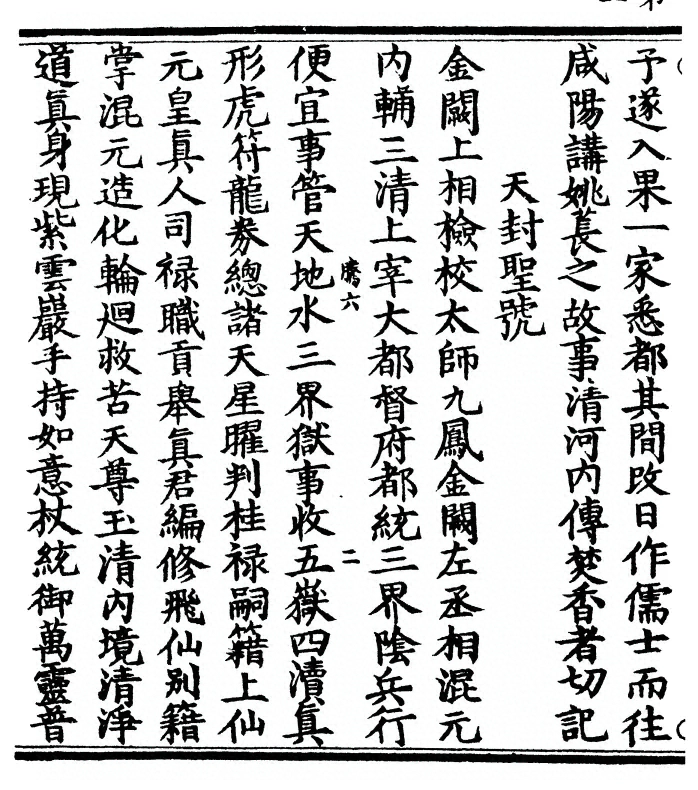 予遂入果一家悉都其間改日作儒士而往
咸陽講姚萇之故事清河內傳焚香者切記
天封聖號
金闕上相檢校太師九鳳金闕左丞相混元
內輔三清上宰大都督府都統三界陰兵行
便宜事管天地水三界獄事收五嶽四瀆真
騰六
二
形虎符龍券總諸天星曜判桂祿嗣籍上仙
元皇真人司祿職貢舉真君編修飛仙別籍
掌混元造化輪迴救苦天尊玉清內境清淨
道真身現紫雲巖手持如意杖統御萬靈普